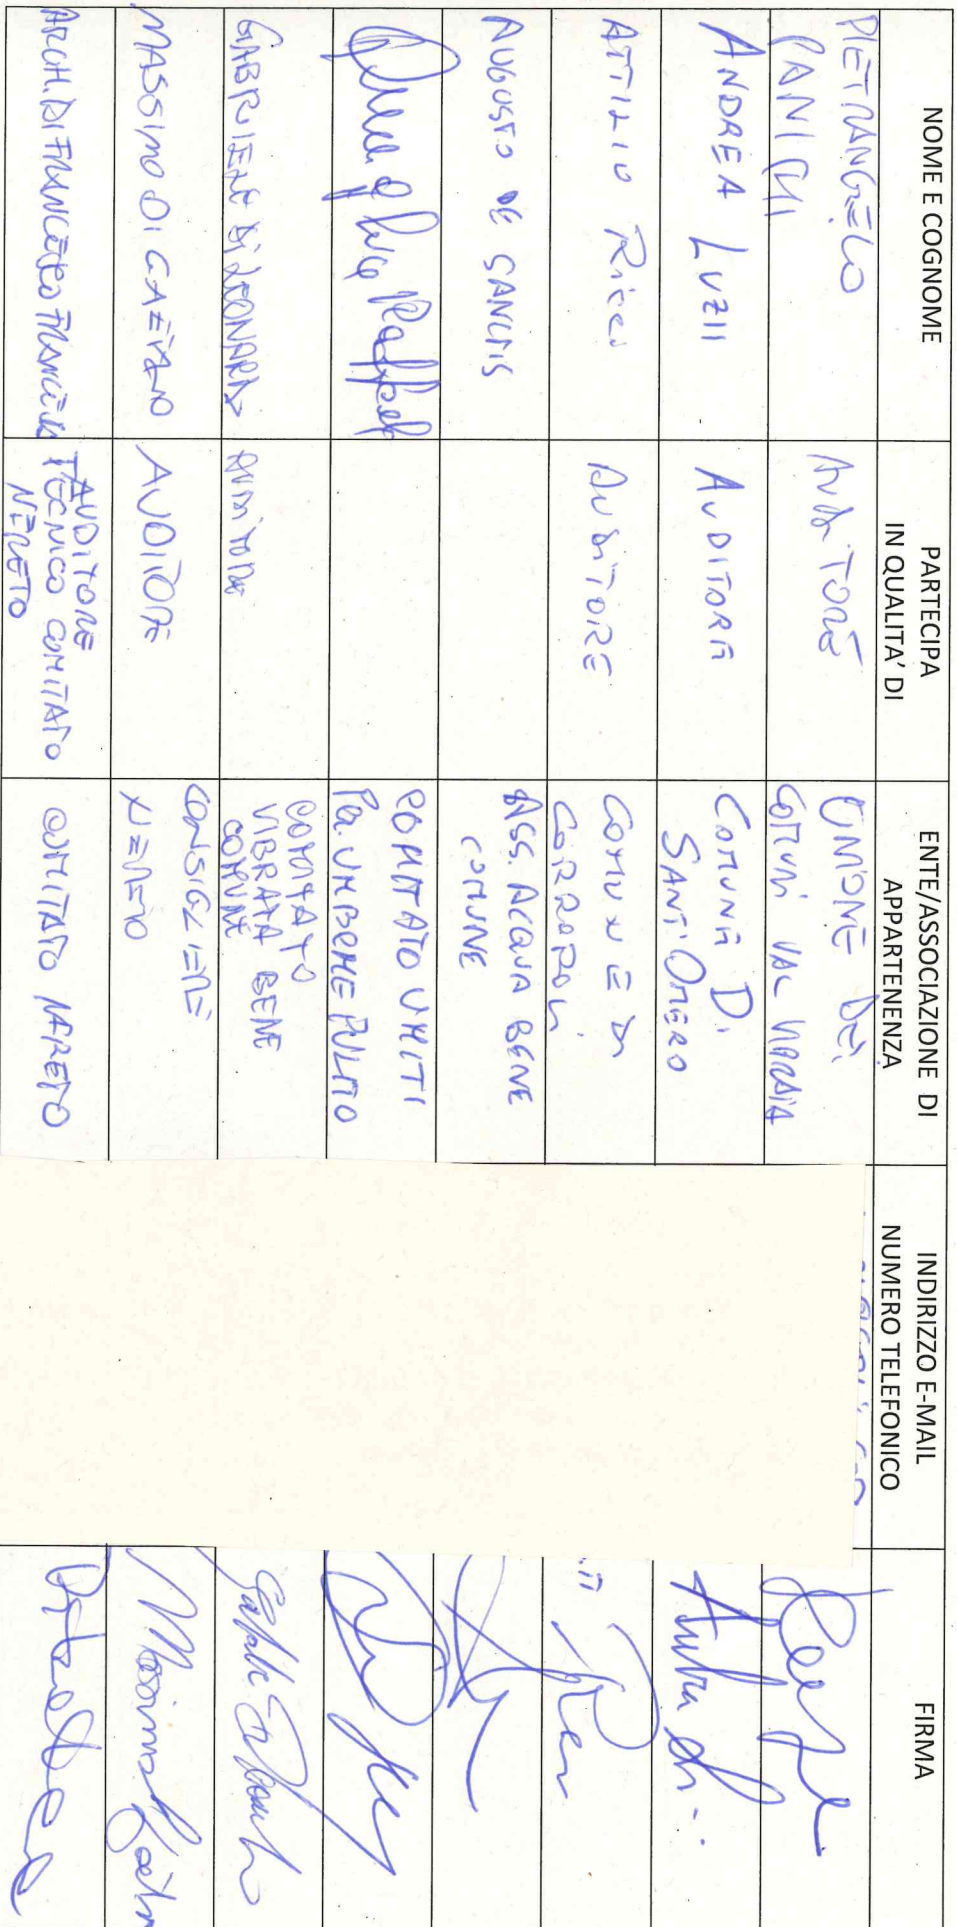 NOME E COGNOME
PARTECIPA
IN QUALITA' DI
ENTE/ASSOCIAZIONE DI
APPARTENENZA
INDIRIZZO E-MAIL
NUMERO TELEFONICO
FIRMA
PIETRANGELO
PANICHI
AUDITORE
UNIONE DEI
COMUNI VAL VIBRATA
ANDREA LUZII
AUDITORE
COMUNE DI
SANT'OMERO
ATTILIO Ricci
AUDITORE
COMUNE DI
CORROPOLI
AUGUSTO DE SANCTIS
ASS. ACQUA BENE
COMUNE
COMITATO UNITI
Per UN BENE PULITO
GABRIELE DI LEONARDO
AUDITORE
COMITATO
VIBRATA BENE
COMUNE
MASSIMO DI GAETANO
AUDITORE
CONSIGLIERE
NERETO
ARCH. DI FRANCESCO FRANCESCO
AUDITORE
TECNICO COMITATO
NERETO
COMITATO NERETO